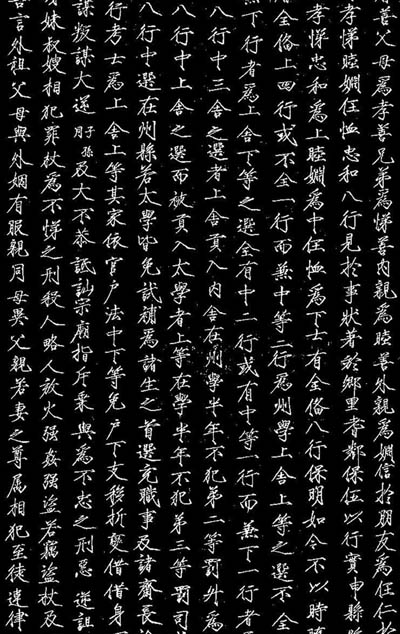 善父母為孝善兄弟為悌善內親為睦善外親為婣信於朋友為任仁於
孝悌睦婣任恤忠和八行見於事狀著於鄉里耆鄰保伍以行實申縣
孝悌忠和為上睦婣為中任恤為下士有全備八行保明如令不以時
全備上四行或不全一行而兼中等二行為州學上舍上等之選不全
兼下一行者為上舍下等之選全有中二行或有中等一行而兼下一行者
八行中三舍之選者上舍貢入內舍在州學半年不犯第二等罰升為
八行中上舍之選而被貢入太學者上等在學半年不犯第三等罰司
八行中選在州縣若太學皆免試補為諸生之首選充職事及諸齋長
行考士為上舍上等其家依官戶法中下等免戶下支移折變借借身
謀叛謀大逆子孫同及大不恭詆訕宗廟指斥乘輿為不忠之刑惡逆詛
妹叔嫂相犯罪杖為不悌之刑殺人略人放火強姦強盜若竊盜杖及
言外祖父母與外婣有服親同母異父親若妻之尊屬相犯至徒違律